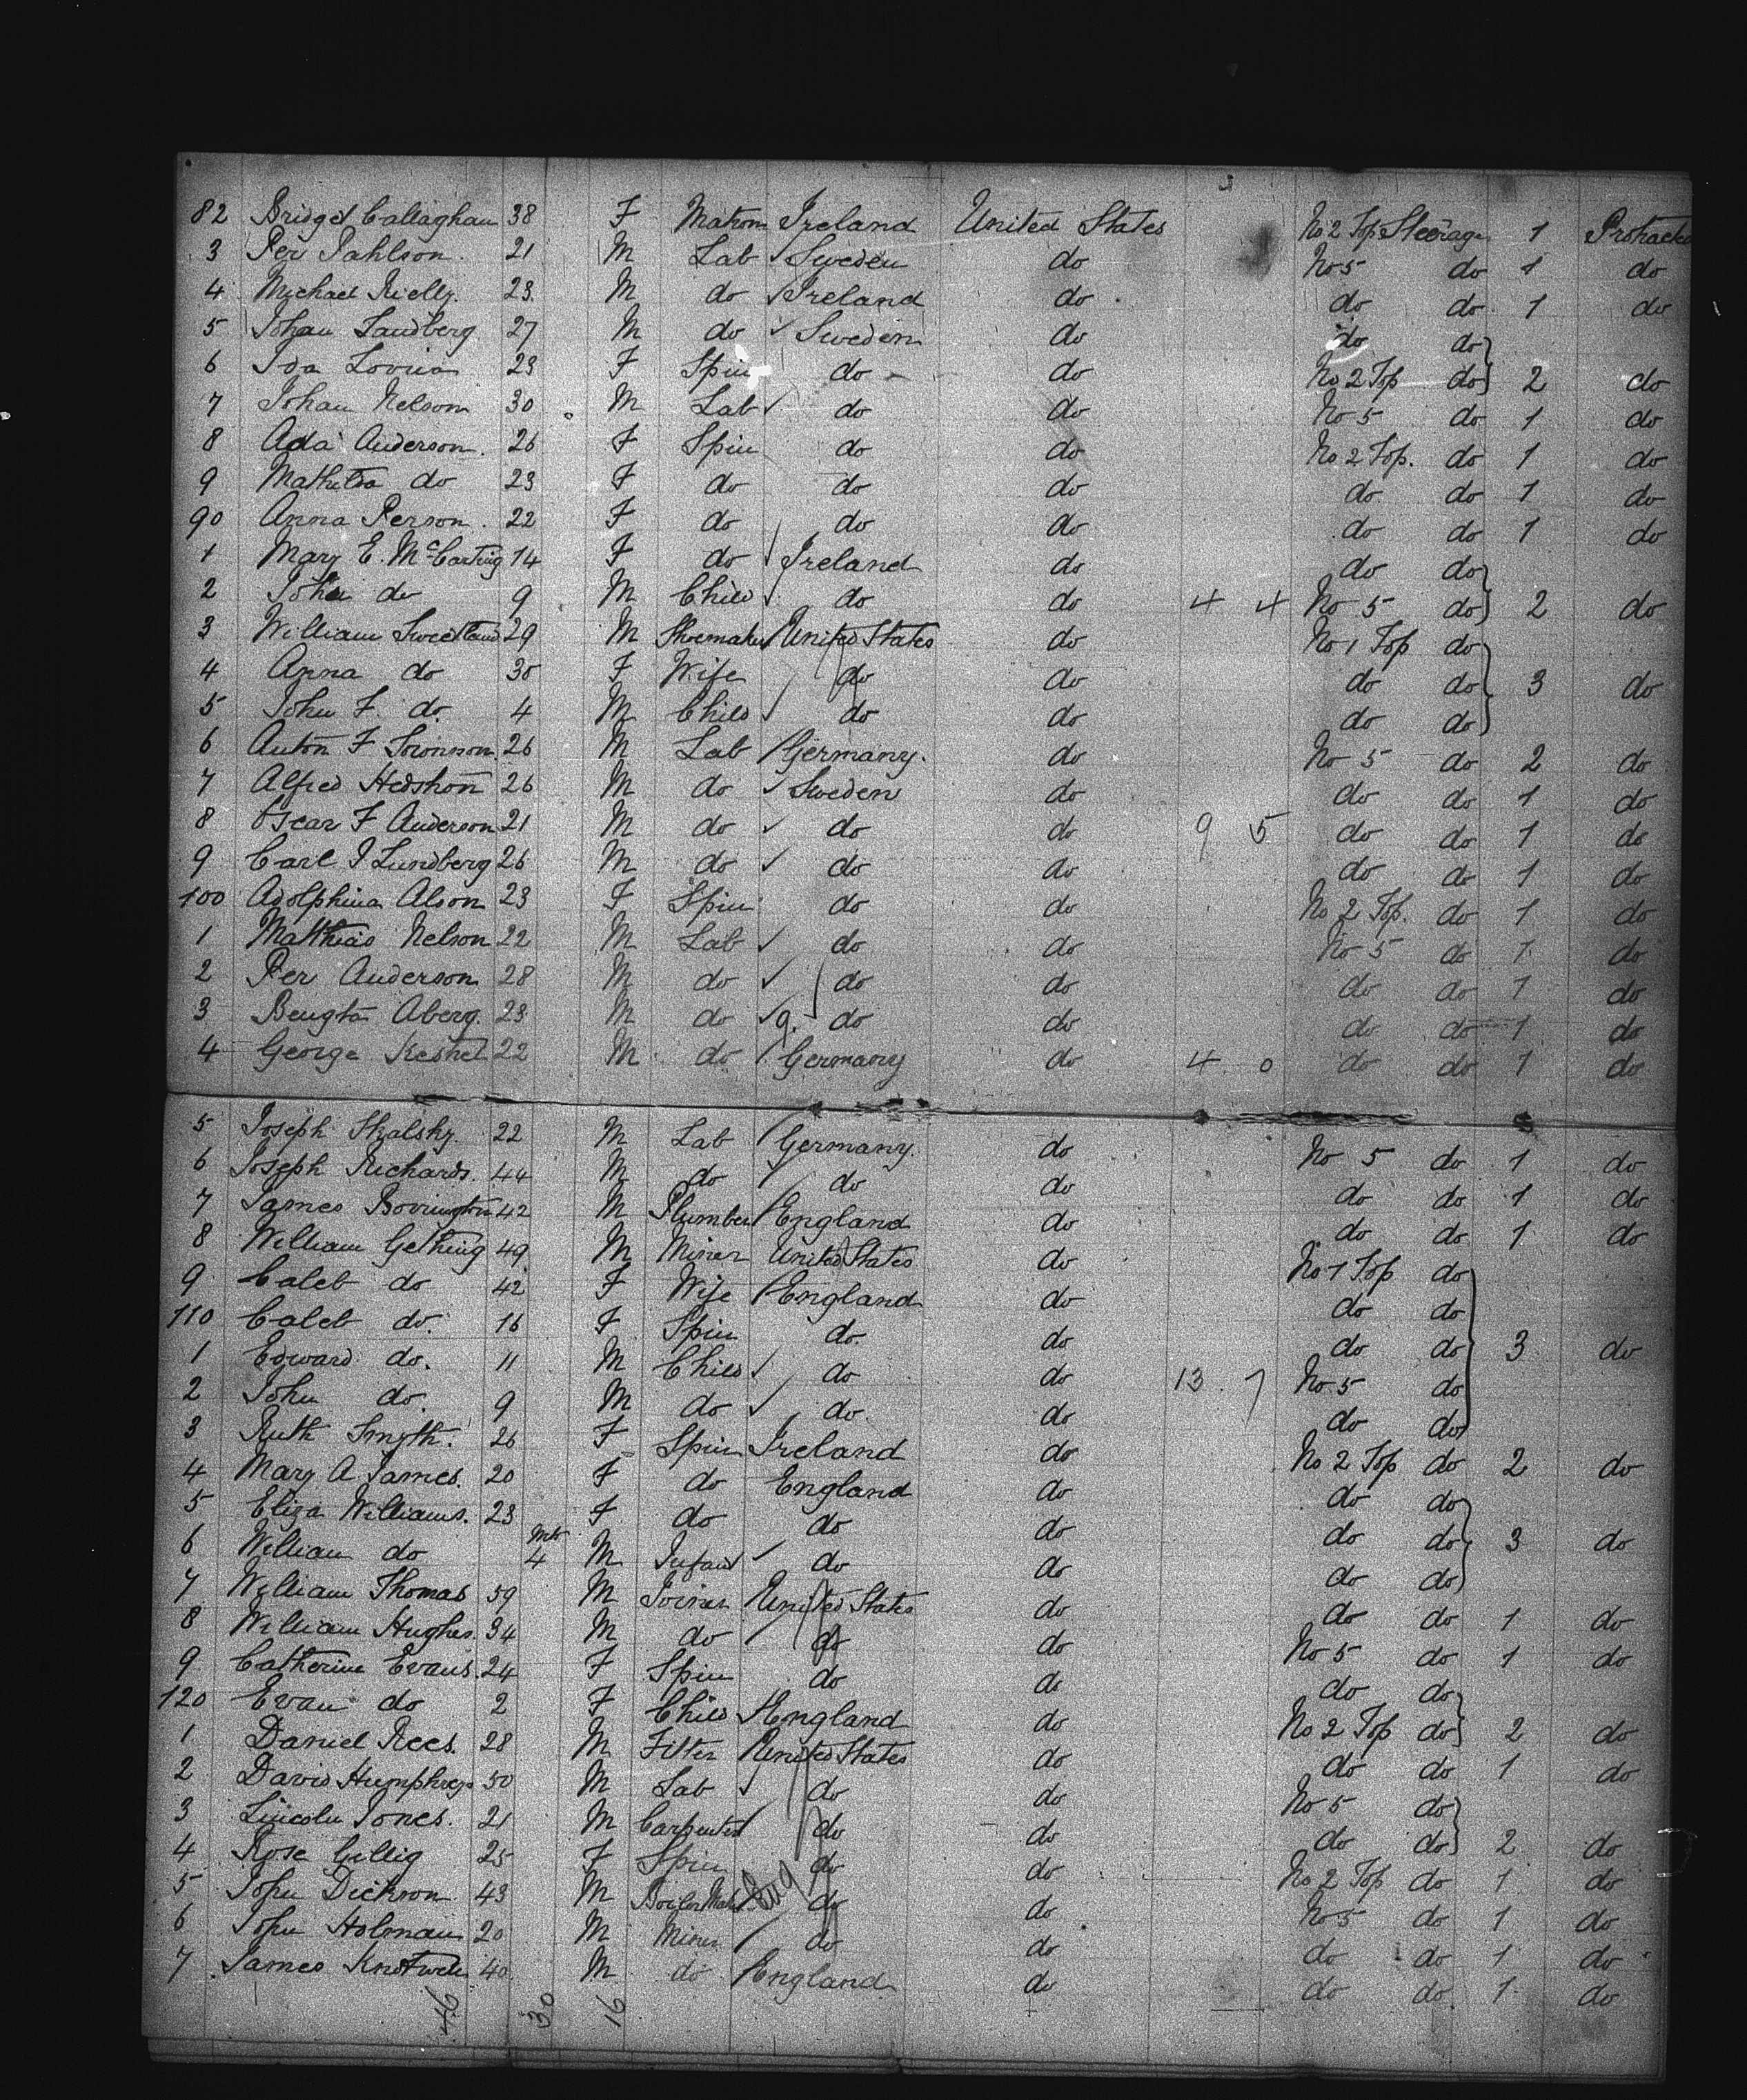 82 Bridget Callaghan 38 F Matron Ireland United States No 2 Top Steerage 1 Protracted
3 Per Pahlson 21 M Lab Sweden do No 5 do 1 do
4 Michael Rielly 23 M do Ireland do do do 1 do
5 Johan Landberg 27 M do Sweden do do do
6 Ida Lovisa 23 F Spin do do No 2 Top do 2 do
7 Johan Nelson 30 M Lab do do No 5 do 1 do
8 Ada Anderson 26 F Spin do do No 2 Top. do 1 do
9 Mathilda do 23 F do do do do do 1 do
90 Anna Person 22 F do do do do do 1 do
1 Mary E. McCarting 14 F do Ireland do do do
2 John do 9 M Child do do 4 4 No 5 do 2 do
3 William Sweetland 29 M Shoemaker United States do No 1 Top do
4 Anna do 30 F Wife do do do do 3 do
5 John F. do 4 M Child do do do do
6 Anton F Swonson 26 M Lab Germany. do No 5 do 2 do
7 Alfred Hedshon 26 M do Sweden do do do 1 do
8 Oscar F Anderson 21 M do do do 9 5 do do 1 do
9 Carl I Lundberg 26 M do do do do do 1 do
100 Adolphina Alson 23 F Spin do do No 2 Top. do 1 do
1 Matthias Nelson 22 M Lab do do No 5 do 1 do
2 Per Anderson 28 M do do do do do 1 do
3 Bengta Aberg. 23 M do 9. do do do do 1 do
4 George Keshel 22 M do Germany do 4 0 do do 1 do
5 Joseph Skalsky. 22 M Lab Germany. do No 5 do 1 do
6 Joseph Richards. 44 M do do do do do 1 do
7 James Bovrington 42 M Plumber England do do do 1 do
8 William Gething 49 M Miner United States do No 1 Top do
9 Caleb do 42 F Wife England do do do
110 Caleb do. 16 F Spin do do do do 3 do
1 Edward do. 11 M Child do do 13. 7 No 5 do
2 John do. 9 M do do. do do do
3 Ruth Smyth. 26 F Spin Ireland do No 2 Top do 2 do
4 Mary A James. 20 F do England do do do
5 Eliza Williams. 23 F do do do do do 3 do
6 William do Mts 4 M Infant do do do do
7 William Thomas 59 M Joiner United States do do do 1 do
8 William Hughes. 34 M do do do No 5 do 1 do
9 Catherine Evans. 24 F Spin do do do do
120 Evan do 2 F Child England do No 2 Top do 2 do
1 Daniel Rees. 28 M Fitter United States do do do 1 do
2 David Humphreys 50 M Lab do do No 5 do
3 Lincoln Jones. 21 M Carpenter do do do do 2 do
4 Rose Gillig 25 F Spin do do No 2 Top do 1 do
5 John Dickson 43 M Boiler Maker Eng do do No 5 do 1 do
6 John Holman 20 M Miner do do do do 1 do
7 James Knotwell 40 M do England do do do 1 do
46 30 16